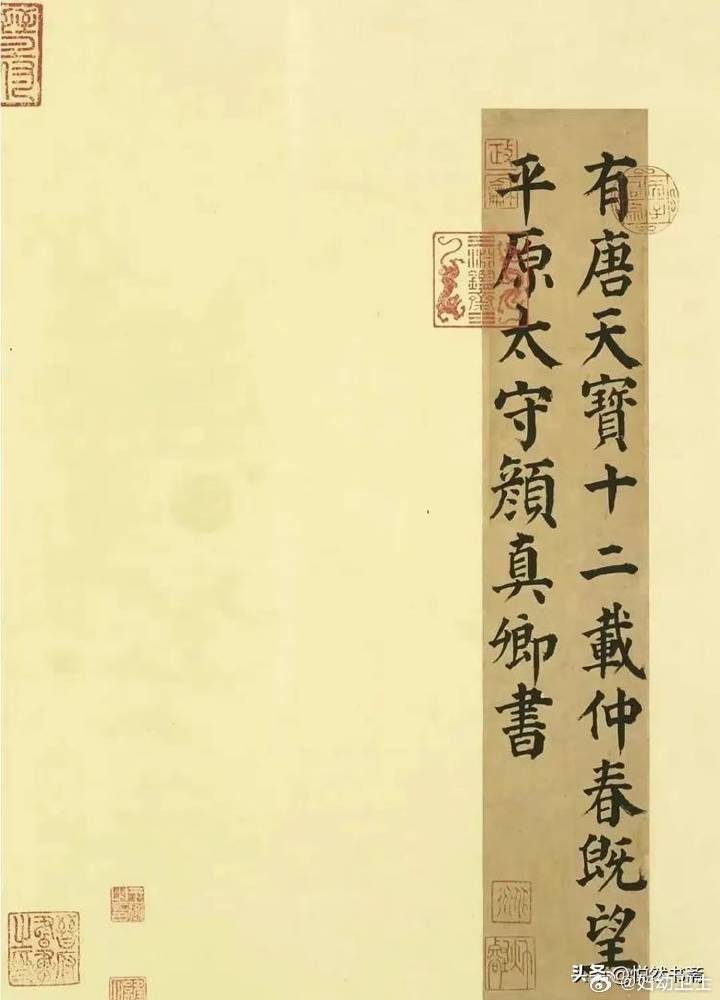 有唐天寶十二載仲春既望
平原太守顏真卿書
头条@悦然书斋
@妇幼卫士